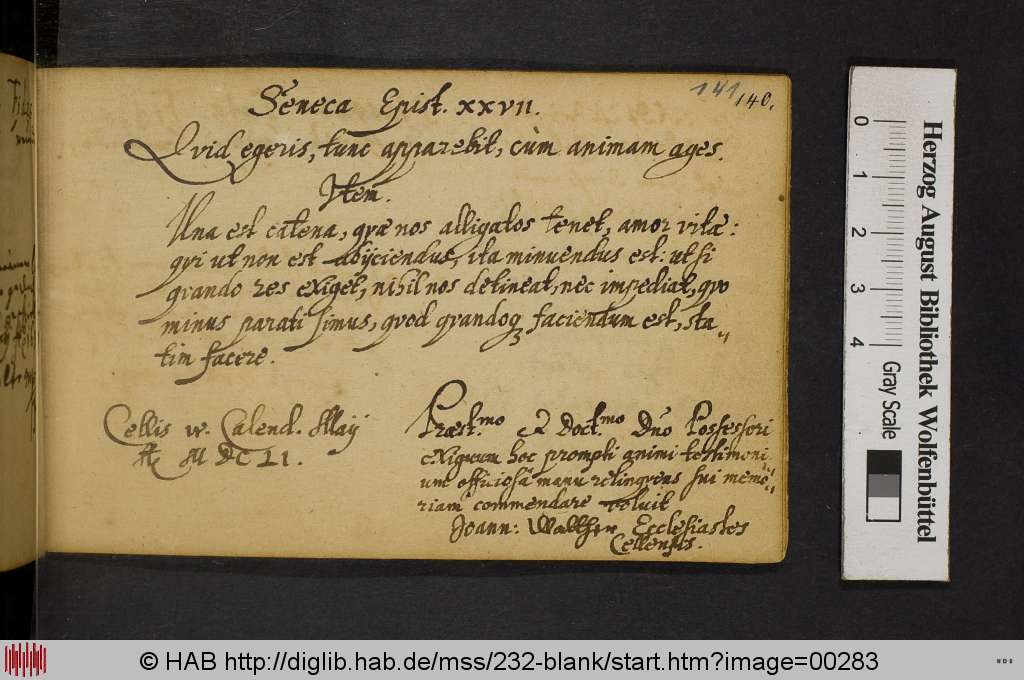 141 140.
Seneca Epist. XXVII.
Qvid egeris, tunc apparebit, cùm animam ages.
Item.
Una est catena, qvæ nos alligatos tenet, amor vitæ:
qvi ut non est abijciendus, ita minuendus est: ut si
qvando res exiget, nihil nos detineat, nec impediat, qvo
minus parati simus, qvod qvandoq faciendum est, sta
tim facere.
Cellis Calend. Maij
M DC LI.
Præst.mo & Doct.mo Dno Possessori
exiguum hoc prompti animi testimoni
um officiosâ manu relinqvens sui memo
riam commendare voluit
Joann: Ecclesiastes
Cellensis.
Herzog August Bibliothek Wolfenbüttel
0 1 2 3 4
Gray Scale
© HAB http://diglib.hab.de/mss/232-blank/start.htm?image=00283